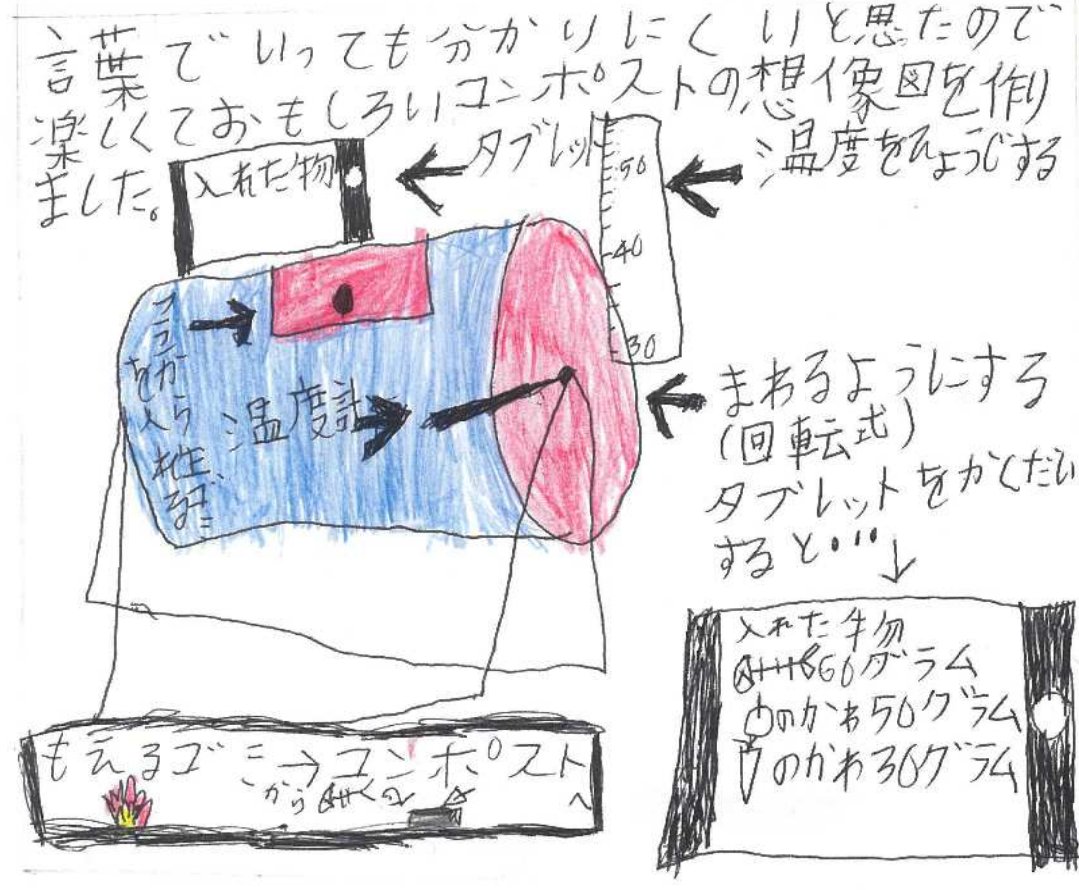 言葉でいっても分かりにくいと思たので
楽しくておもしろいコンポストの想像図を作り
ました。
入れた物
タブレット
50
40
30
温度をひょうじする
フタ
ここから
を入れる
温度計
まわるようにする
(回転式)
タブレットをかくだい
すると・・・
入れた物
60グラム
のかわ50グラム
のかわ30グラム
もえるゴミ→コンポスト
から
へ